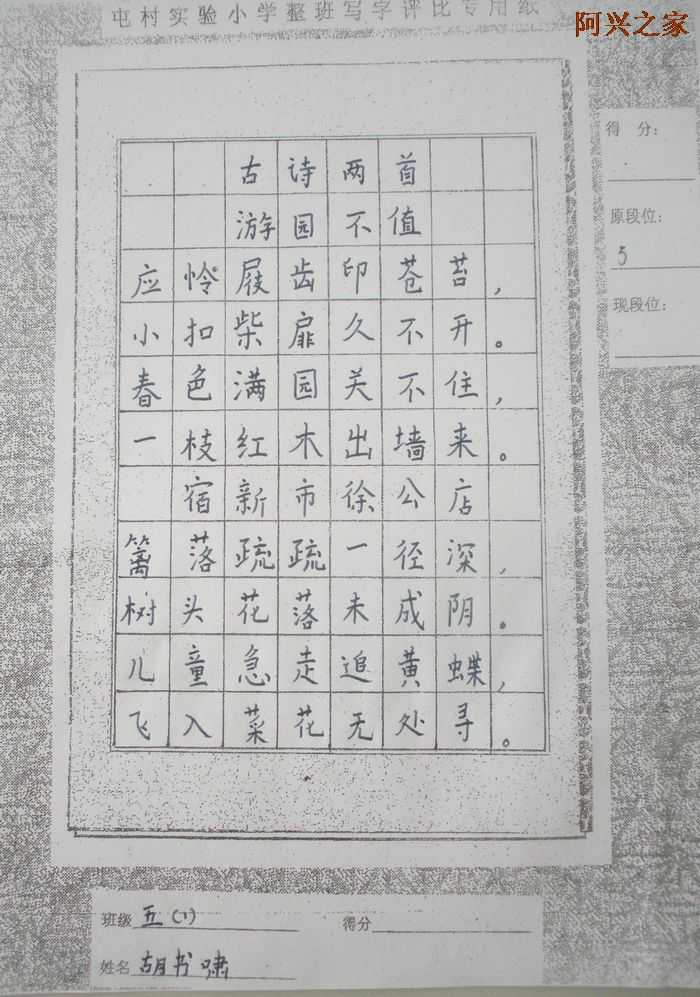 屯村实验小学整班写字评比专用纸
阿兴之家
得 分：
原段位：
5
现段位：
古诗两首
游园不值
应怜屐齿印苍苔，
小扣柴扉久不开。
春色满园关不住，
一枝红木出墙来。
宿新市徐公店
篱落疏疏一径深，
树头花落未成阴。
儿童急走追黄蝶，
飞入菜花无处寻。
班级 五（1） 得分
姓名 胡书啸